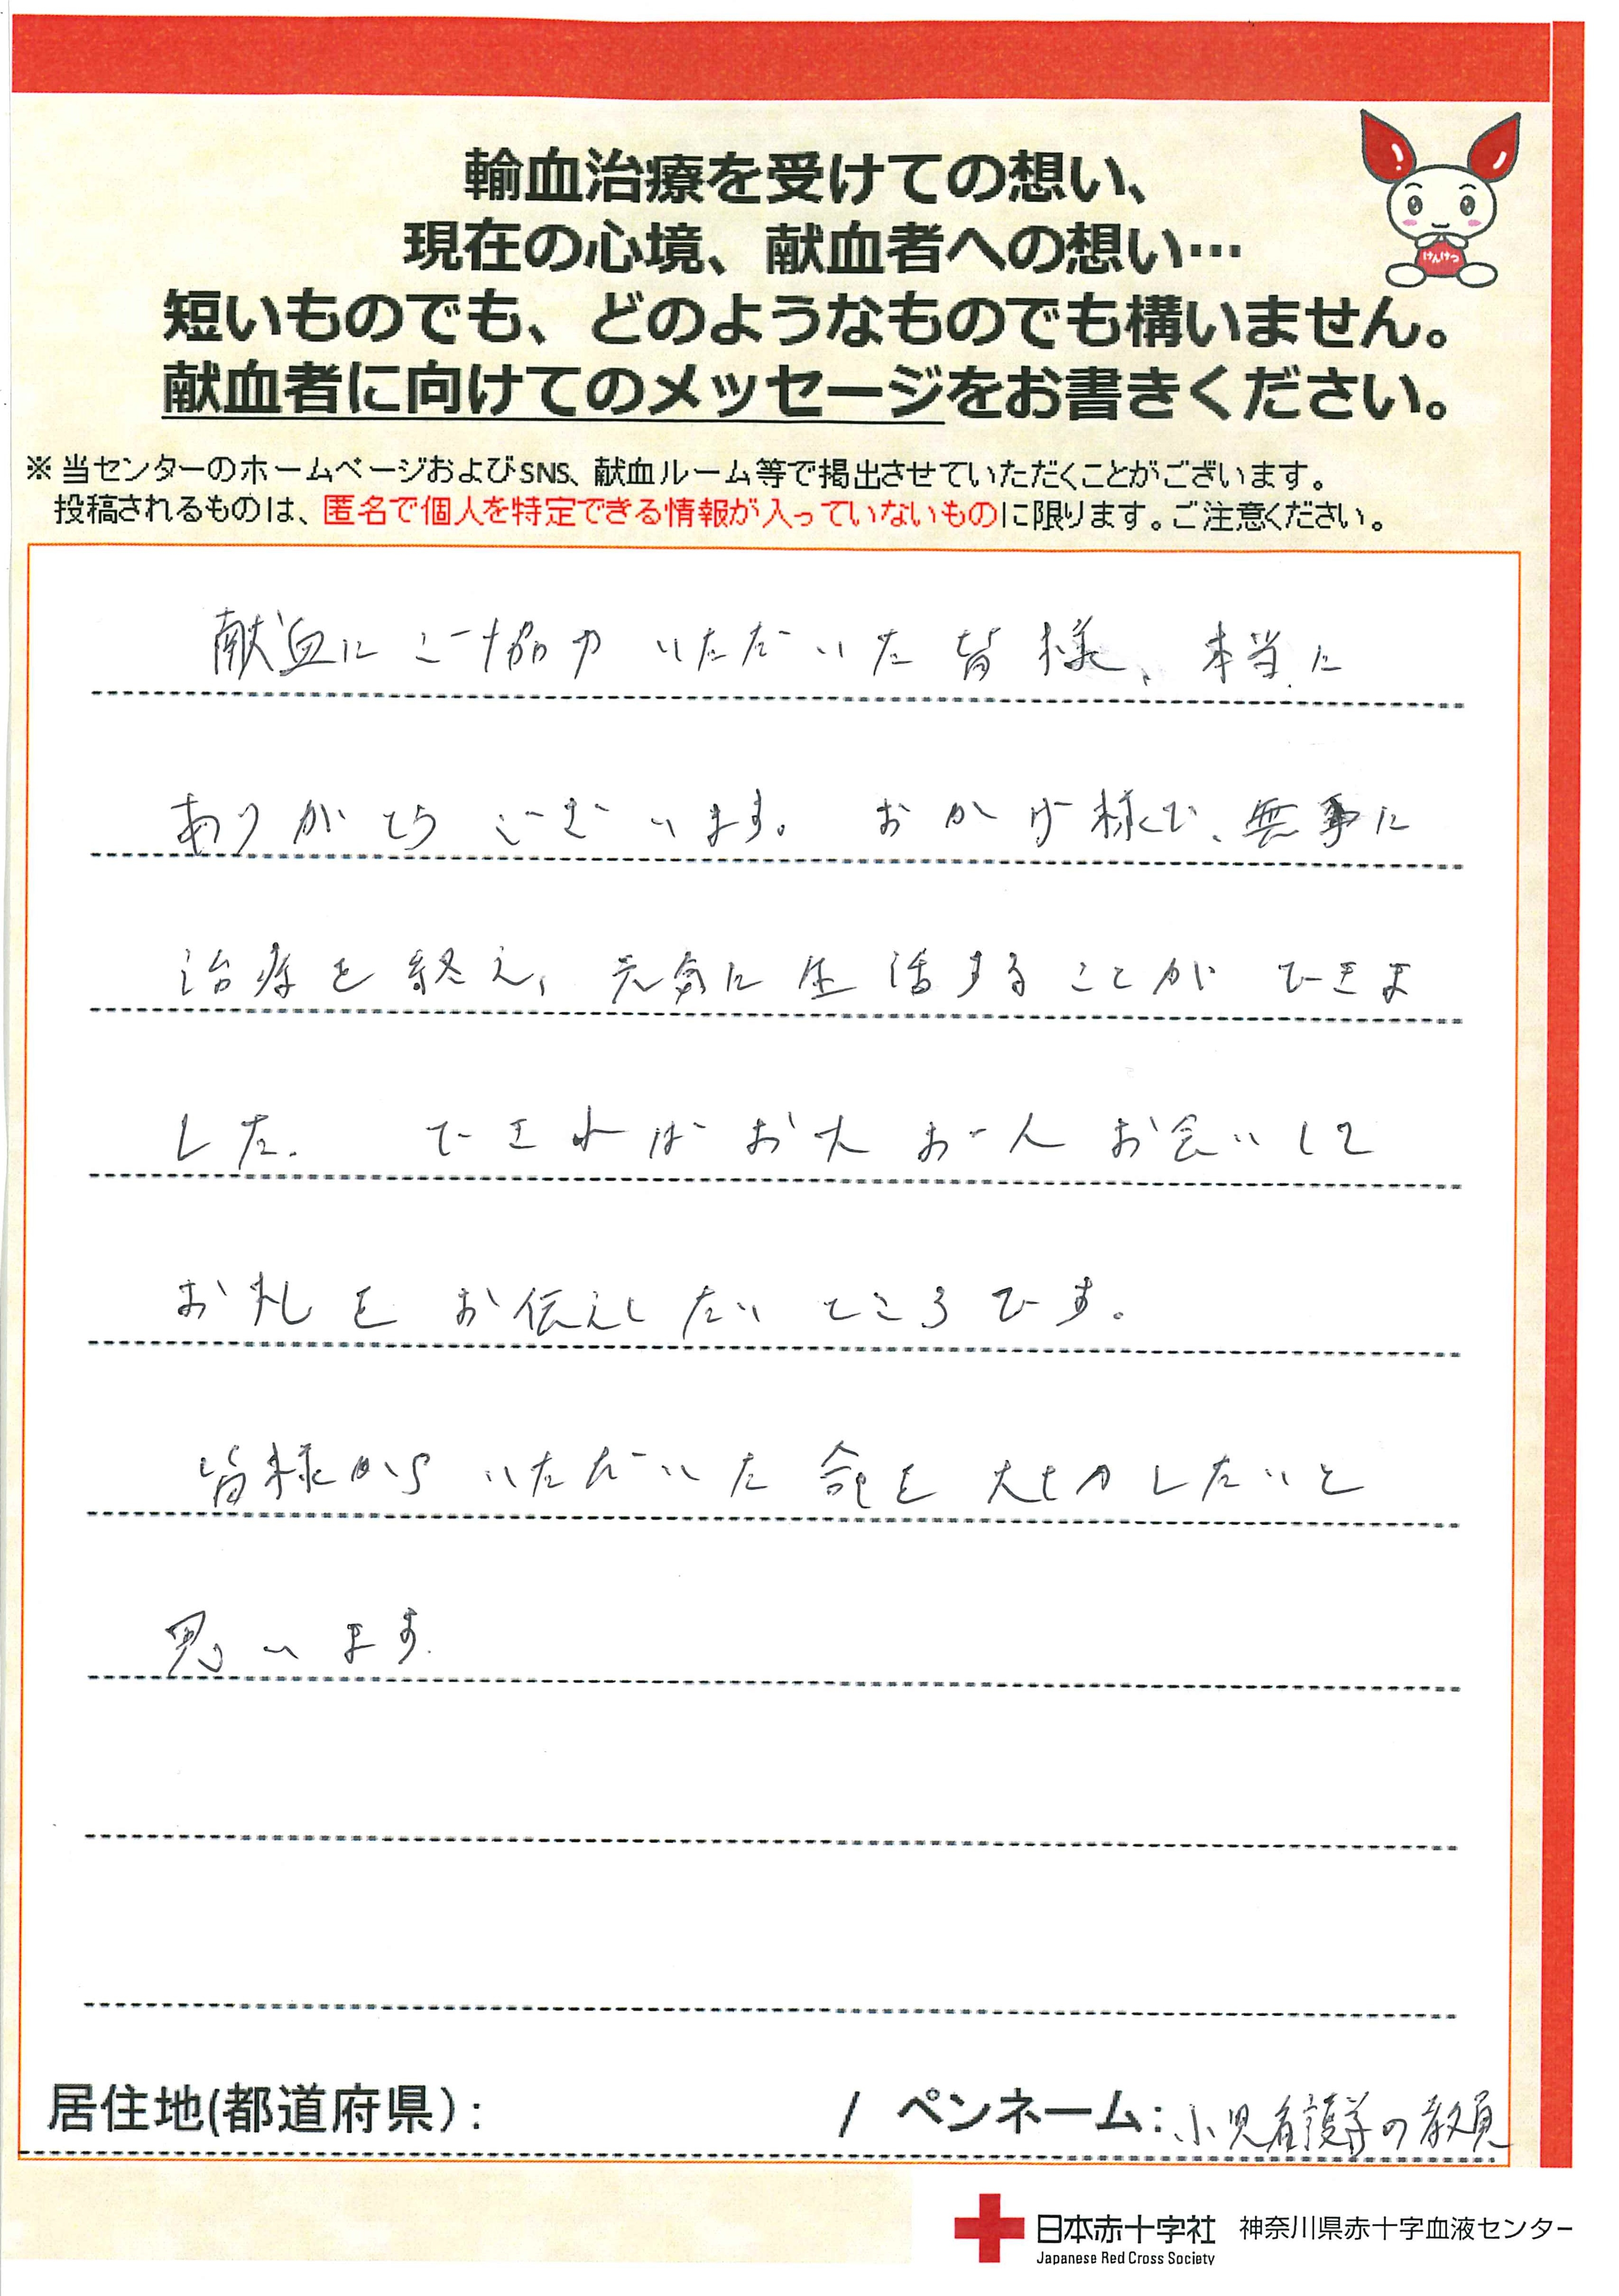 輸血治療を受けての想い、
現在の心境、献血者への想い…
短いものでも、どのようなものでも構いません。
献血者に向けてのメッセージをお書きください。
けんけつ
※当センターのホームページおよびSNS、献血ルーム等で掲出させていただくことがございます。
投稿されるものは、匿名で個人を特定できる情報が入っていないものに限ります。ご注意ください。
献血にご協力いただいた皆様、本当に
ありがとうございます。おかげ様で、無事に
治療を終え、元気に生活することができま
した。できればお一人お一人お会いして
お礼をお伝えしたいところです。
皆様からいただいた命を大切にしたいと
思います.
居住地(都道府県): / ペンネーム: 小児看護学の教員
日本赤十字社 神奈川県赤十字血液センター
Japanese Red Cross Society